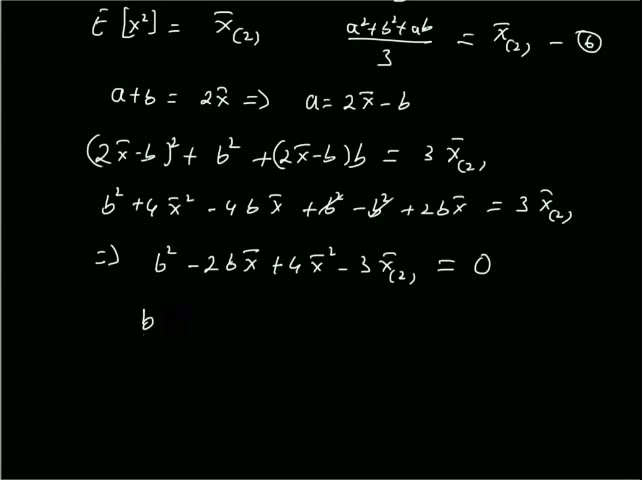 E[x²] = x̄₍₂₎   (a²+b²+ab)/3 = x̄₍₂₎ — ⑥
a+b = 2x̄ => a = 2x̄ - b
(2x̄-b)² + b² + (2x̄-b)b = 3 x̄₍₂₎
b² + 4x̄² - 4bx̄ + b² - b² + 2bx̄ = 3 x̄₍₂₎
=> b² - 2bx̄ + 4x̄² - 3x̄₍₂₎ = 0
b